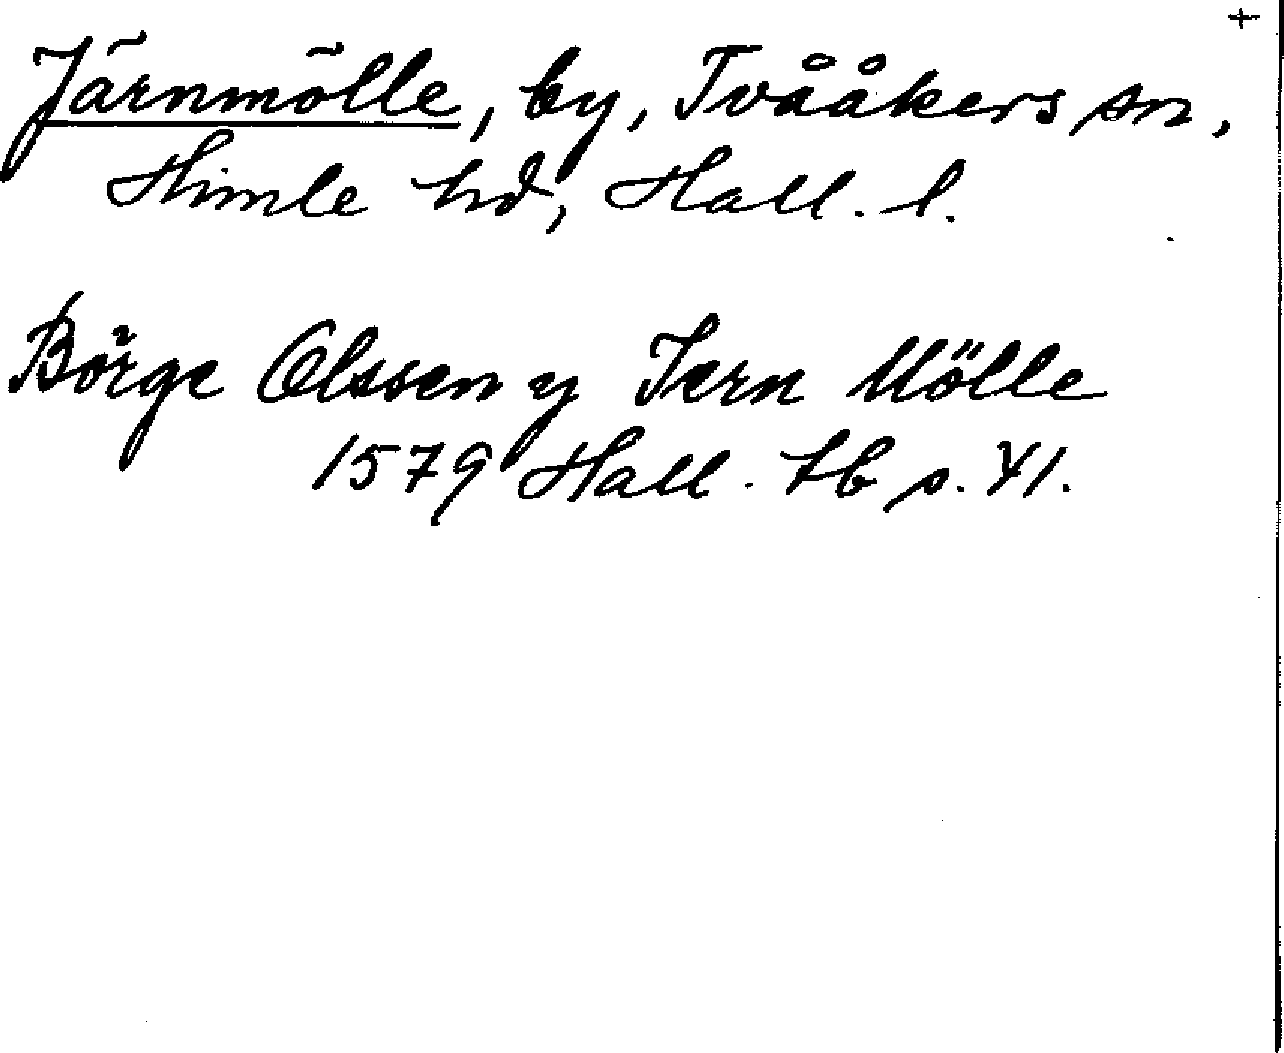 +
Järnmölle, by, Tvååkers sn,
Himle hd, Hall. l.
Börge Olssen y Iern Mölle
1579 Hall. tb s. 41.